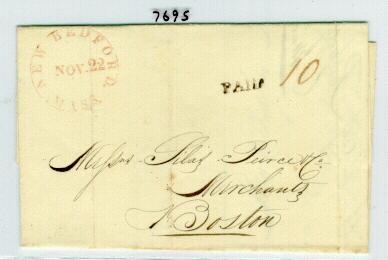 7695
NEW BEDFORD
NOV. 22
MASS
PAID 10
Messrs Silas Peirce & Co.
Merchants
Boston